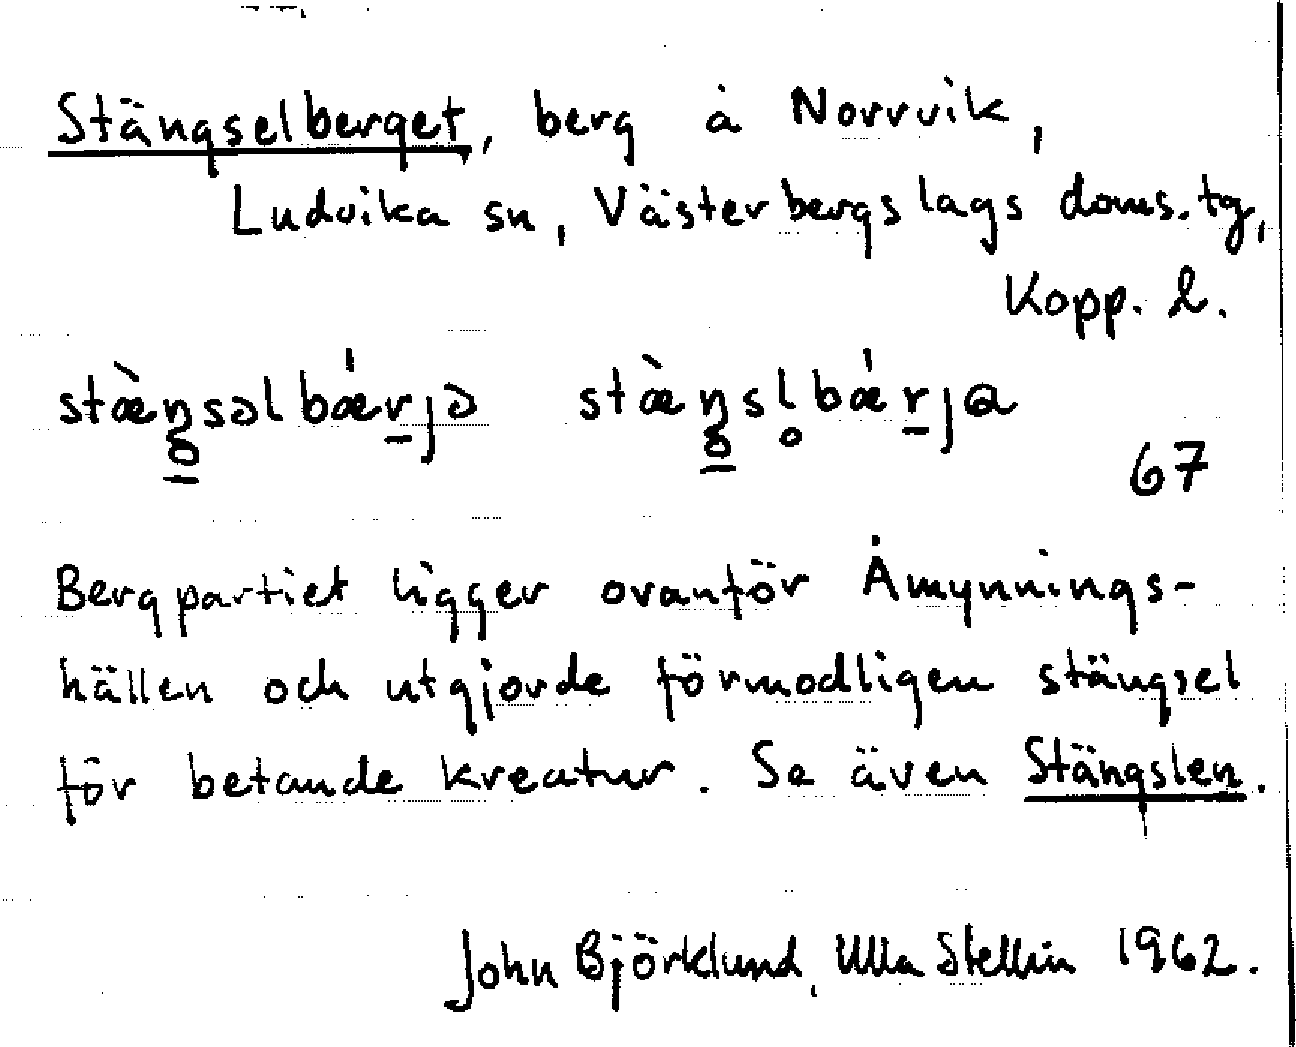 Stängselberget, berg å Norrvik,
Ludvika sn, Västerbergslags doms. tg,
Kopp. l.
stæ̀ŋ̲̊səlbǽr̲jə stæ̀ŋ̲̊sl̥bǽr̲jɷ
67
Bergpartiet ligger ovanför Åmynnings-
hällen och utgjorde förmodligen stängsel
för betande kreatur. Se även Stängslen.
John Björklund, Ulla Stellin 1962.